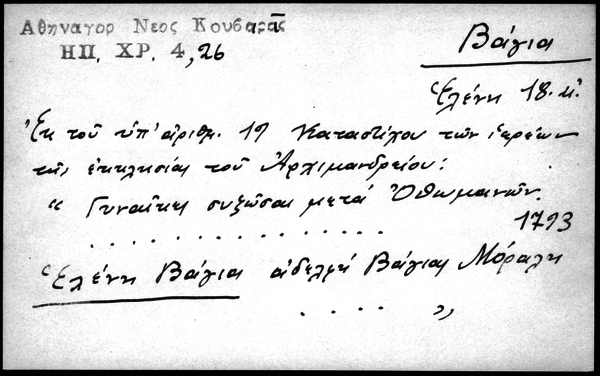 Αθηναγορ Νεος Κουβαρᾶς
ΗΠ. ΧΡ. 4, 26
Βάγια
Ἑλένη 18. κ!
Ἐκ τοῦ ὑπ' ἀριθμ. 19 Καταστίχου τῶν ἱερέων
τῆς ἐκκλησίας τοῦ Ἀρχιμανδρείου:
" Γυναῖκες συζῶσαι μετά Ὀθωμανῶν.
. . . . . . . . . . . . . . . . 1793
Ἑλένη Βάγια ἀδελφή Βάγιας Μόραλη
. . . . "